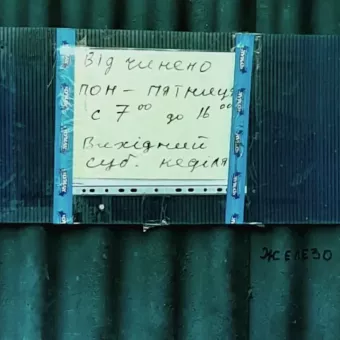 Відчинено
пон - пятниця
с 7⁰⁰ до 16⁰⁰
Вихідний
суб. неділя
ЖЕЛЕЗО